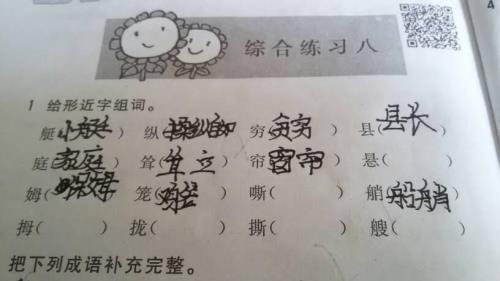 综合练习八
1 给形近字组词。
艇(小艇) 纵(操纵) 穷(贫穷) 县(县长)
庭(家庭) 耸(耸立) 帘(窗帘) 悬( )
姆(保姆) 笼( ) 嘶( ) 艄(船艄)
拇( ) 拢( ) 撕( ) 艘( )
把下列成语补充完整。